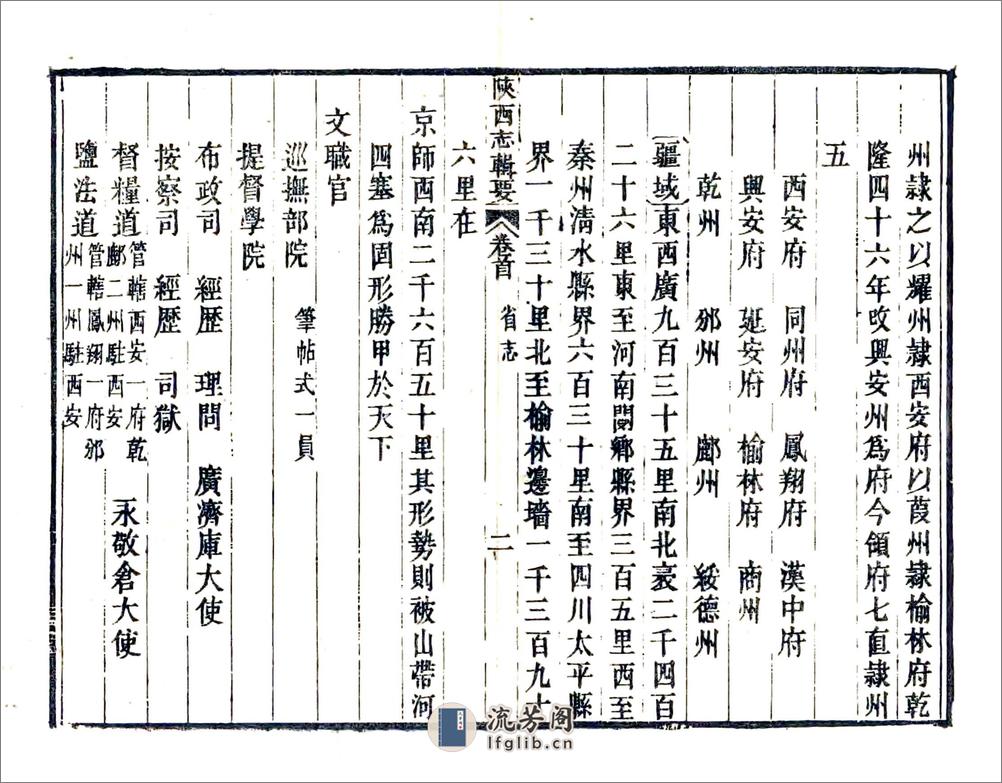 州隸之以耀州隸西安府以葭州隸榆林府乾
隆四十六年改興安州爲府今領府七直隸州
五
西安府　同州府　鳳翔府　漢中府
興安府　延安府　榆林府　商州
乾州　邠州　鄜州　綏德州
疆域東西廣九百三十五里南北袤二千四百
二十六里東至河南閿鄉縣界三百五里西至
秦州清水縣界六百三十里南至四川太平縣
界一千三十里北至榆林邊墻一千三百九十
陝西志輯要　卷首　省志　二
六里在
京師西南二千六百五十里其形勢則被山帶河
四塞爲固形勝甲於天下
文職官
巡撫部院　筆帖式一員
提督學院
布政司　經歷　理問　廣濟庫大使
按察司　經歷　司獄
督糧道　管轄西安一府乾鄜二州駐西安　永敬倉大使
鹽法道　管轄鳳翔一府邠州一州駐西安
流芳阁
lfglib.cn